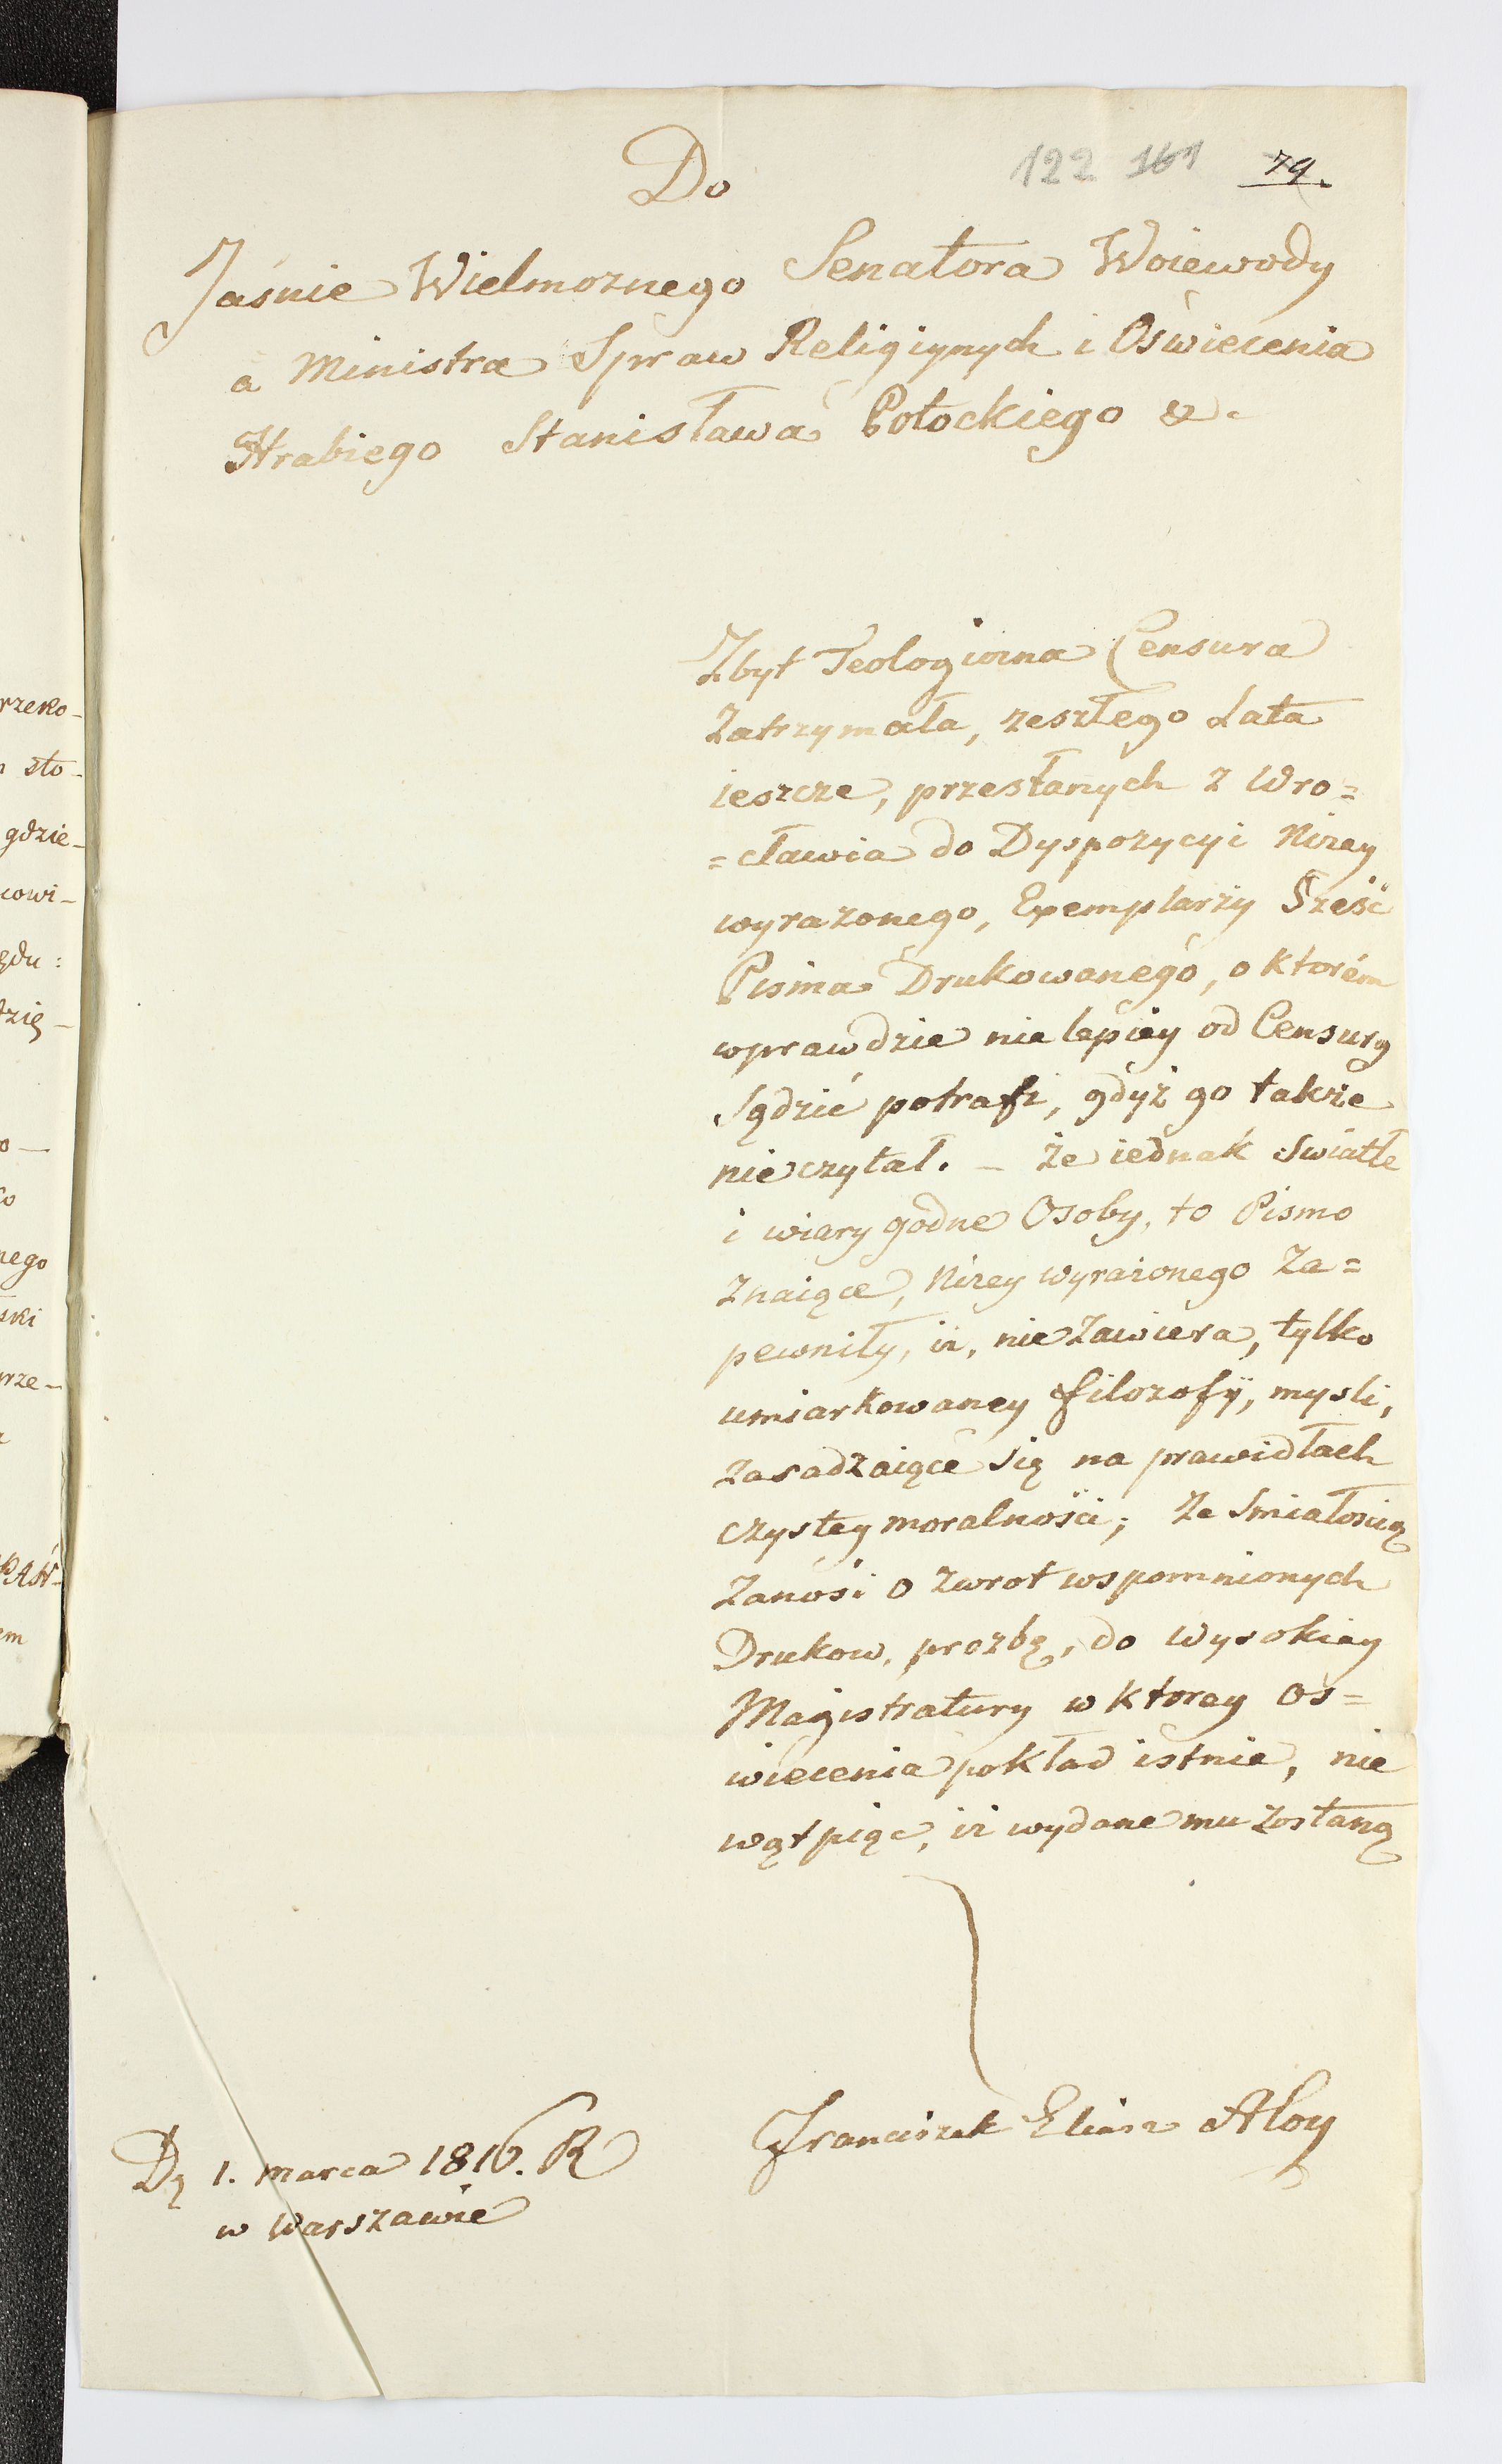 122 161 79.
Do
Jaśnie Wielmoznego Senatora Woiewody
a Ministra Spraw Religiynych i Oświecenia
Hrabiego Stanisława Potockiego &.
Zbyt Teologiczna Censura
Zatrzymała, zeszłego Lata
ieszcze, przesłanych z Wro=
=cławia do Dyspozycyi Nizey
wyrazonego, Exemplarzy Sześć
Pisma Drukowanego, o ktorém
wprawdzie nie lepiey od Censury
Sądzić potrafi, gdyż go także
nie czytał. – że iednak Swiatłe
i wiary godne Osoby, to Pismo
Znaiące, Nizey wyrażonego Za=
pewniły, iż, nie Zawiera, tylko
umiarkowaney filozofÿ, mysli,
zasadzaiące się na prawidłach
czystey moralnośći; Ze Smiałoscią
Zanosi o Zwrot wspomnionych
Drukow, prozbę, do Wysokiey
Magistratury w ktorey Os=
wiecenia pokład istnie, nie
wątpiąc, iż wydane mu Zostaną
Franciszek Eliasz Aloy
Dą 1. Marca 1816. R
w Warszawie
rzeko-
sto-
gdzie-
cowi-
ędu:
dzię-
o —
nego
ski
rze-
em